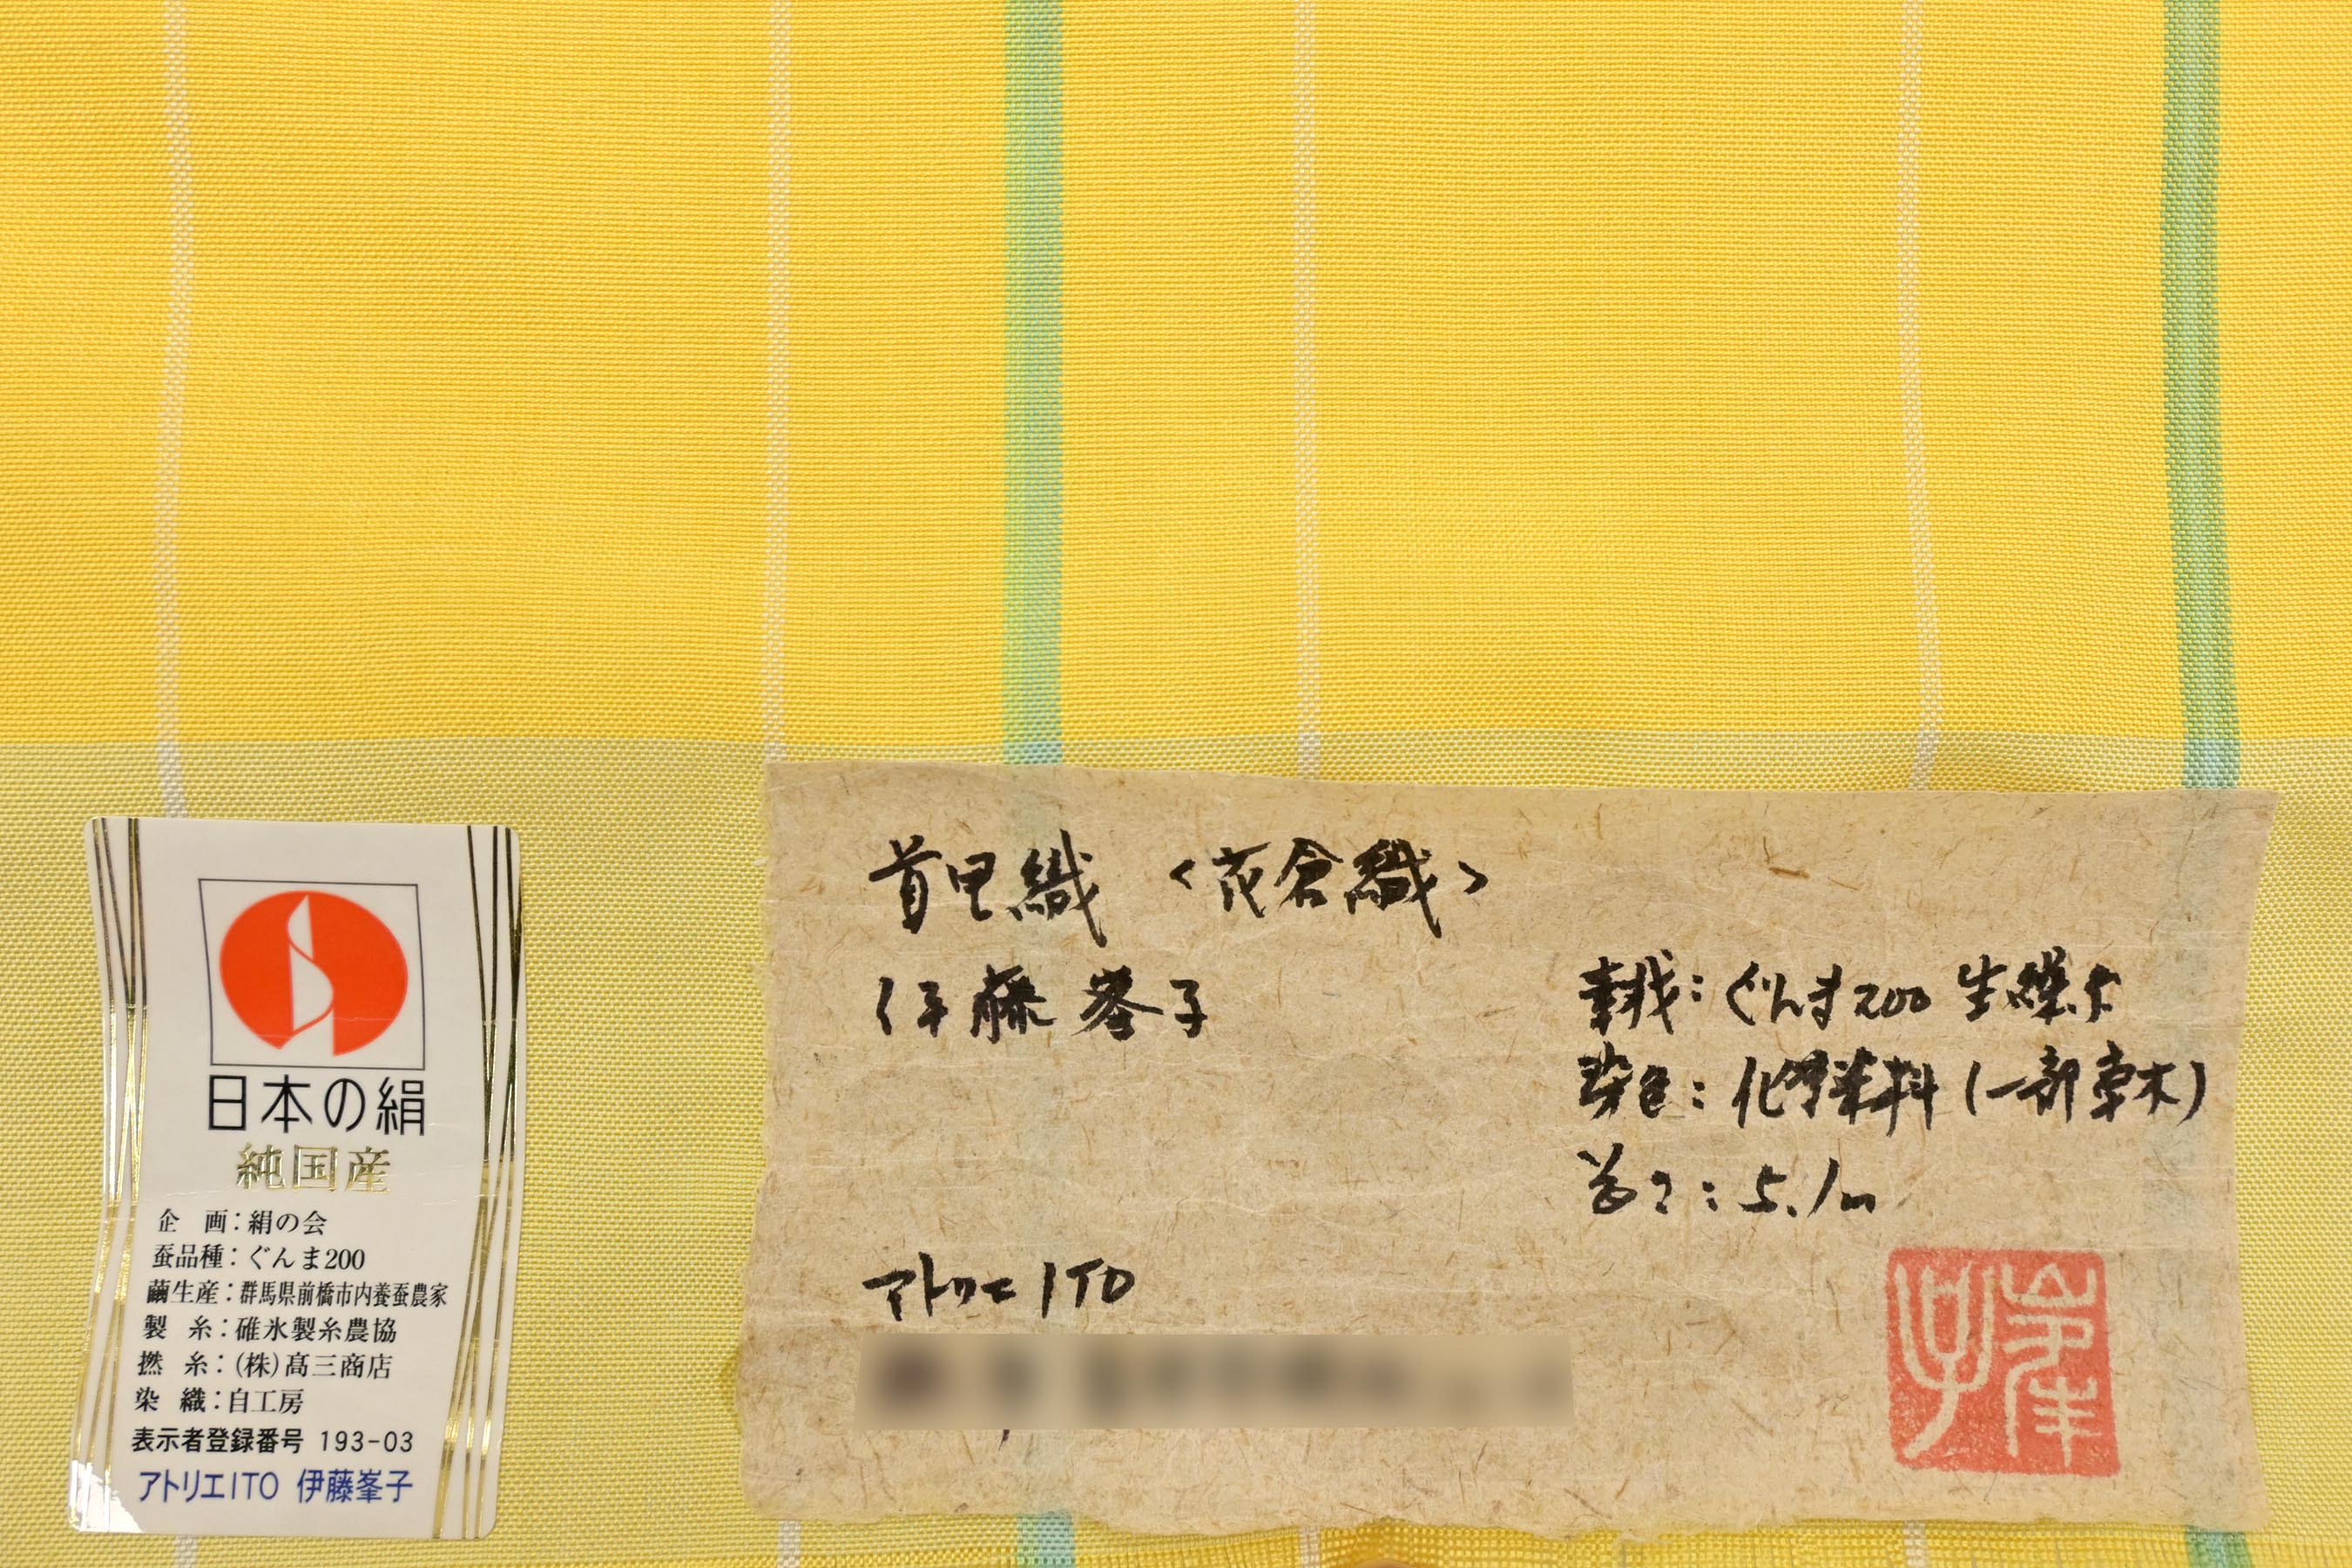 日本の絹
純国産
企 画：絹の会
蚕品種：ぐんま200
繭生産：群馬県前橋市内養蚕農家
製 糸：碓氷製糸農協
撚 糸：(株)髙三商店
染 織：自工房
表示者登録番号 193-03
アトリエITO 伊藤峯子
首里織 <花倉織>
伊藤峯子
素材：ぐんま200 生繰糸
染色：化学染料(一部草木)
長さ：5.1m
アトリエ ITO
峯子